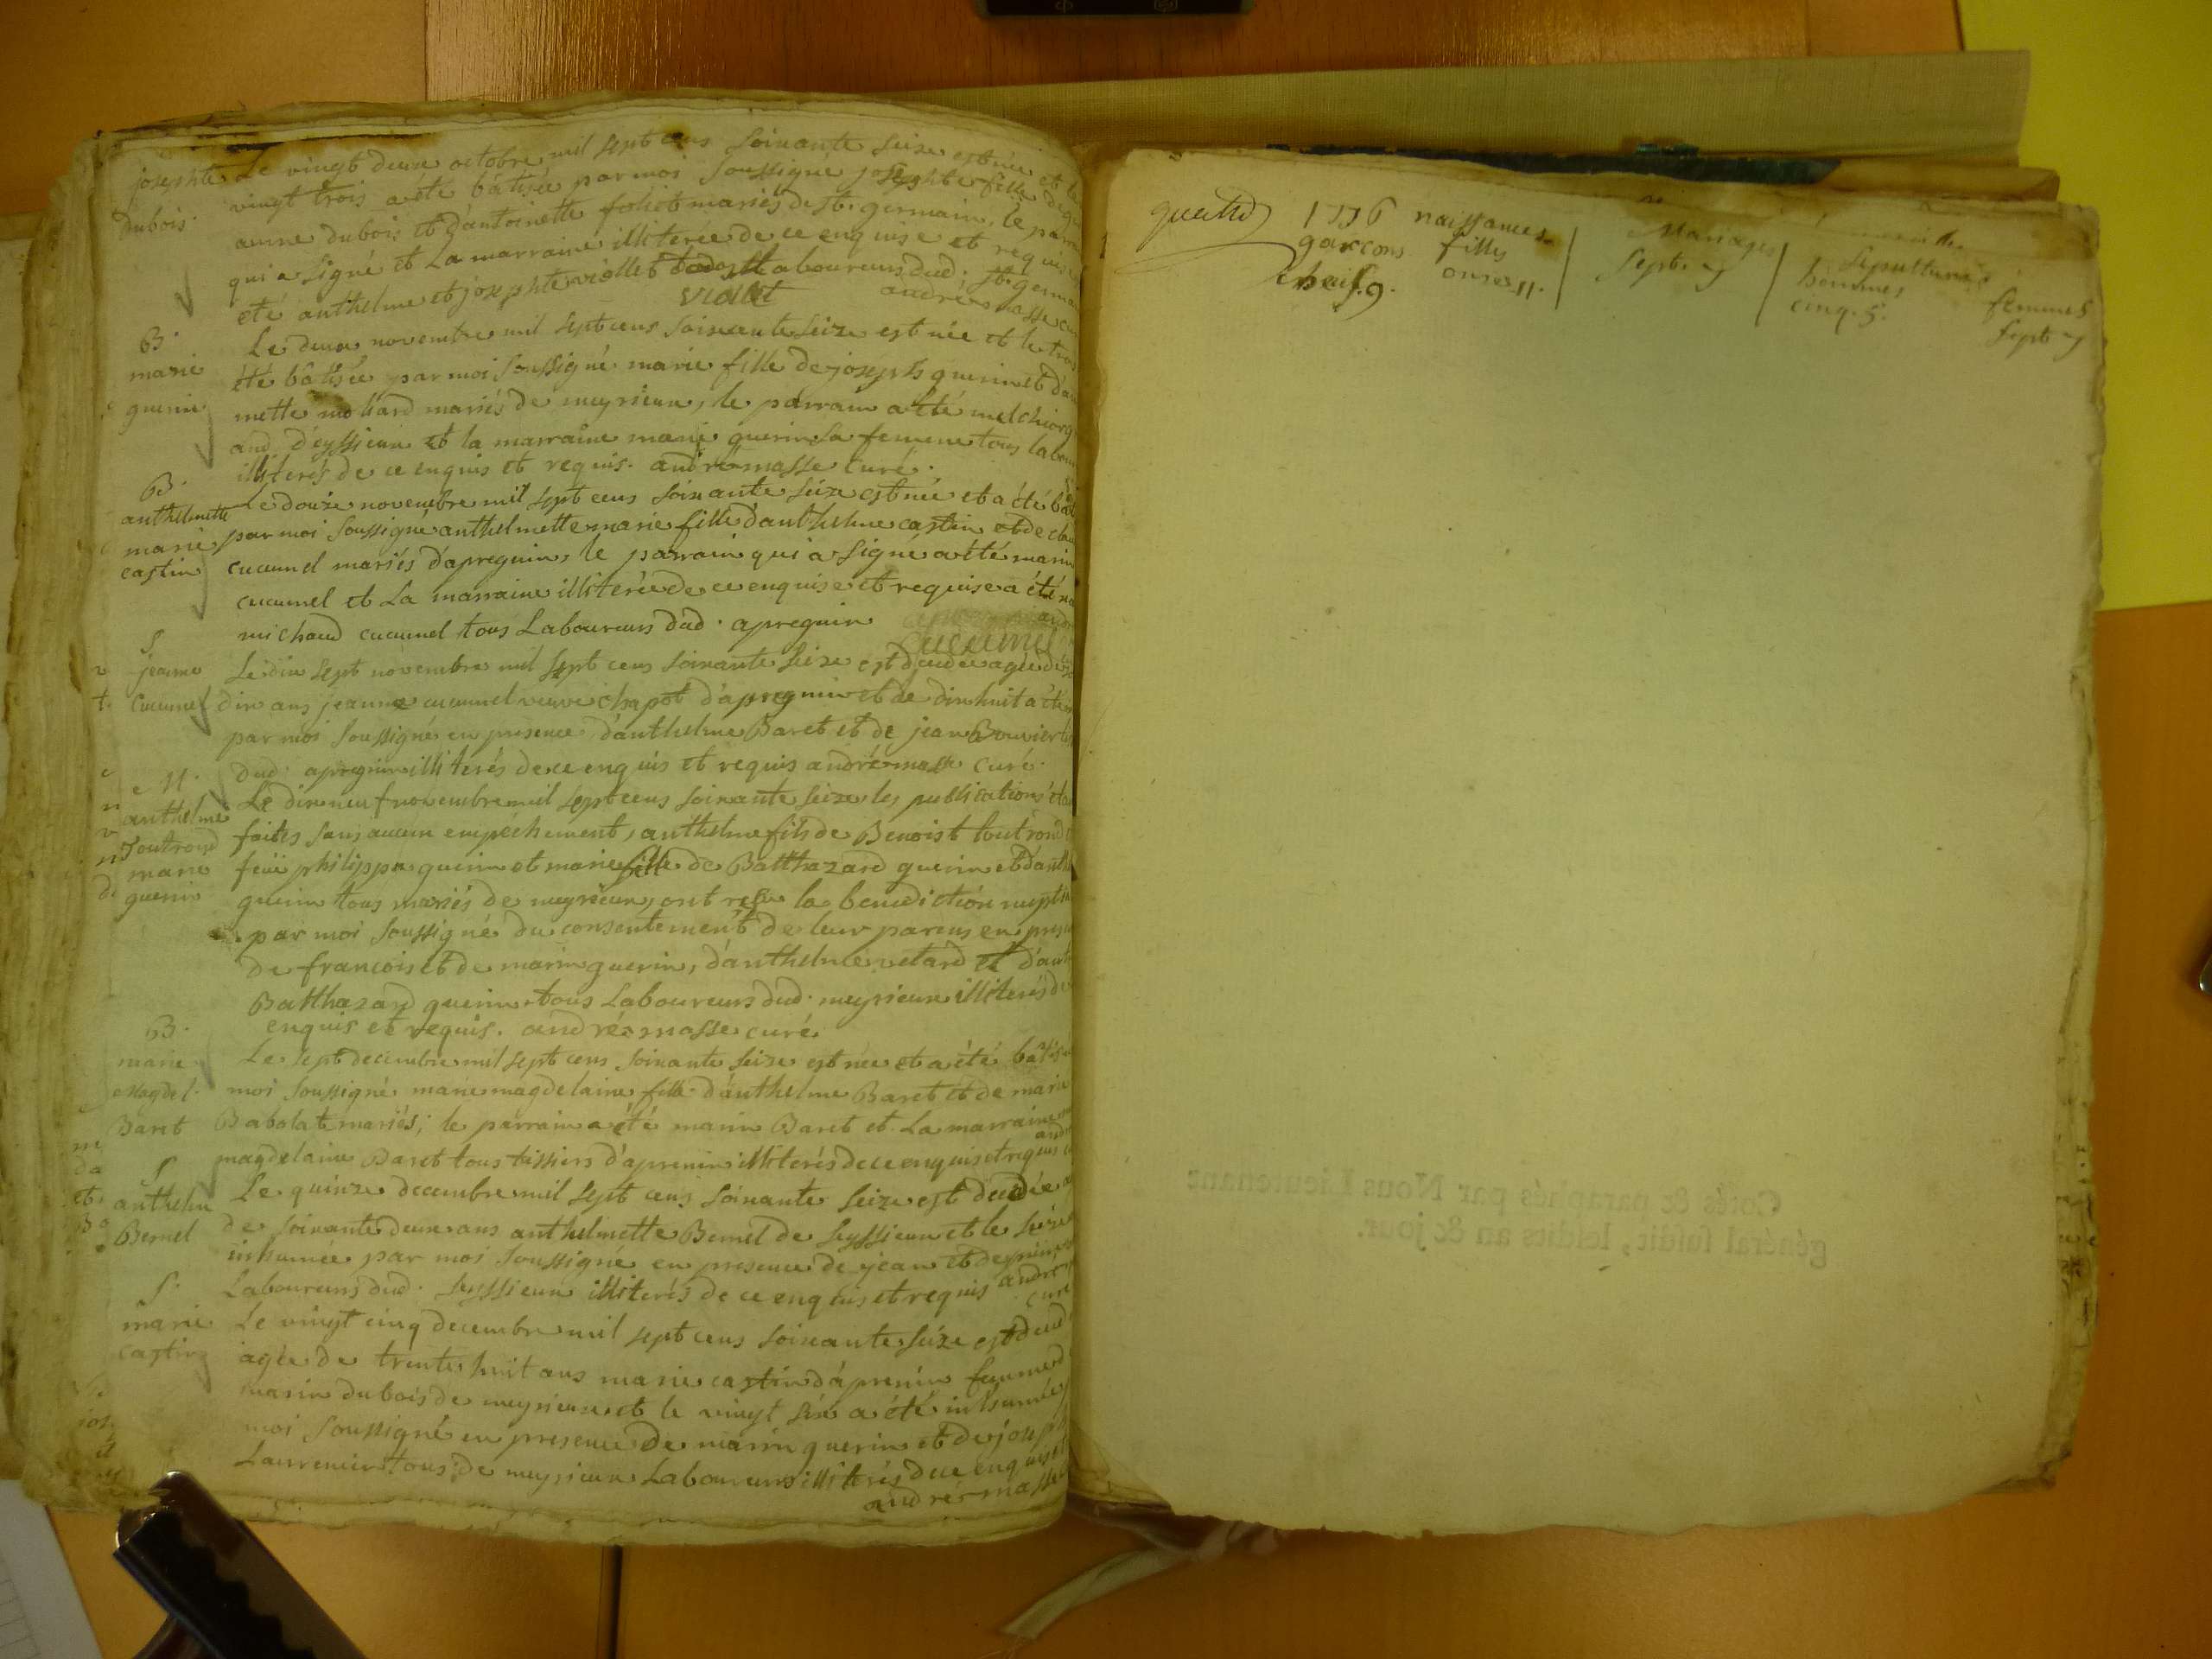 josephte Le vingt deux octobre mil sept cens soixante seize est née et le
dubois vingt trois a été bâtisée par moi soussigné josephte fille de
dubois et d'antoinette foliet mariés de St. germain, le parrain
qui a signé et La marraine illiterée de ce enquise et requise
été anthelme et josephte viollet tous laboureurs dud. St. germain
viollet andré masse
B. Le deux novembre mil sept cens soixante seize est née et le trois
marie été bâtisée par moi soussigné marie fille de joseph guerin et d'an
guerin mette moliard mariés de meyrieux, le parrain a été melchior
d'eyssieux et la marraine marie guerin sa femme tous labour
illiterés de ce enquis et requis. andré masse curé.
B. Le douze novembre mil sept cens soixante seize est née et a été bât
anthelmette par moi soussigné anthelmette marie fille d'anthelme castin et de clau
marie cucunnel mariés d'apregnin, le parrain qui a signé a été marin
castin cucunnel et La marraine illiterée de ce enquise et requise a été
michaud cucunnel tous Laboureurs dud. apregnin
Cucunnel
S.
jeanne Le dix sept novembre mil sept cens soixante seize est décédée agée de
Cucunnel dix ans jeanne cucunnel veuve chapot d'apregnin et le dix huit a été
par moi soussigné en presence d'anthelme Baret et de jean Bouvier
dud. apregnin illiterés de ce enquis et requis andré masse curé.
M. Le dix neuf novembre mil sept cens soixante seize, les publications
anthelme faites sans aucun empêchement, anthelme fils de Benoist toutrond
Toutrond feüe philippa guerin et marie fille de Balthazard guerin et d'anth
marie guerin tous mariés de meyrieux, ont reçu la benediction nuptia
guerin par moi soussigné du consentement de leur parens en pres
de francois et de marin guerin, d'anthelme vetard et d'ant
Balthazard guerin tous Laboureurs dud. meyrieux illiterés de
enquis et requis. andré masse curé
B.
marie Le sept decembre mil sept cens soixante seize est née et a été bâtis
Magdel. moi soussigné marie magdelaine fille d'anthelme Baret et de marie
Baret Babolat mariés; le parrain a été marin Baret et La marraine
magdelaine Baret tous tissiers d'aprenin illiterés de ce enquis et requis
S. Le quinze decembre mil sept cens soixante seize est décédée
anthelm de soixante deux ans anthelmette Bemel de Seyssieux et le seize
Bemel inhumée par moi soussigné en presence de jean et de
Laboureurs dud. Seyssieux illiterés de ce enquis et requis andré
curé
S.
marie Le vingt cinq decembre mil sept cens soixante seize est décéd
castin agée de trente huit ans marie castin d'aprenin femme d
marin dubois de meyrieux et le vingt six a été inhumée
moi soussigné en presence de marin guerin et de joseph
Laurencin tous de meyrieux Laboureurs illiterés de ce enquis et
andré masse
1776 naissances Mariages Sepultures
garcons filles Sept. 7 hommes femmes
neuf. 9. onze 11. cinq. 5. Sept 7
Cotés & paraphés par Nous Lieutenant
général susdit, lesdits an & jour.